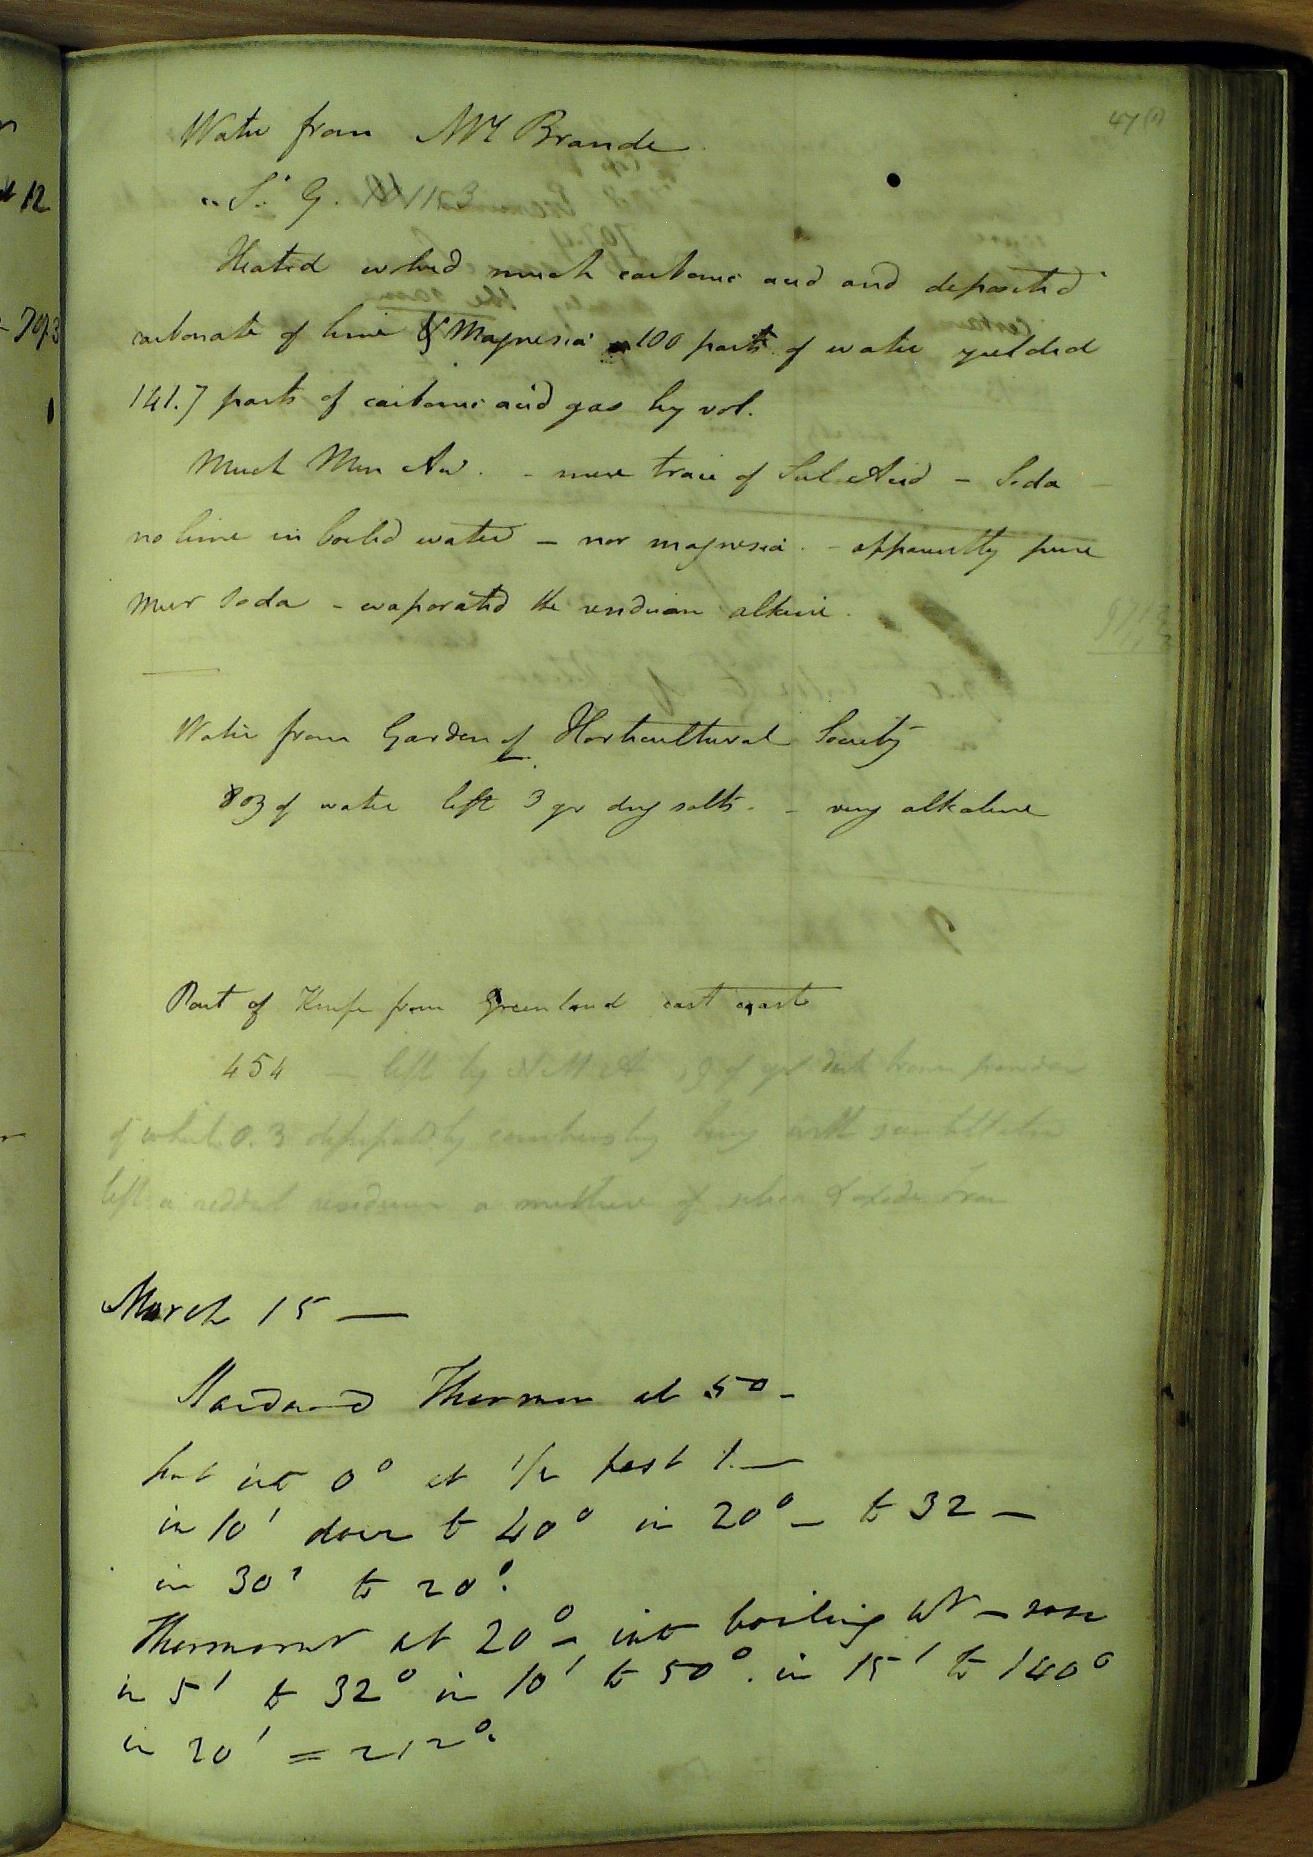 47 (1)
Water from Mr Brande
S. G.
Heated evolved much carbonic acid and deposited
carbonate of lime & Magnesia 100 parts of water yielded
141.7 parts of carbonic acid gas by vol.
Much Mur Acid. - mere trace of Sul Acid - Soda -
no lime in boiled water - nor magnesia. - apparently pure
mur soda - evaporated the residuum alkaline.
Water from Garden of Horticultural Society
8 oz of water left 3 gr dry salts. - very alkaline
Part of Knife from Greenland east coast
454 - left by N M A of gr dark brown powder
of which 0.3 by being with
left a reddish residuum a mixture of silica & oxide Iron
March 15 -
Standard Thermom at 50 -
put into 0° at 1/2 past 1. -
in 10' down to 40° in 20° - to 32 -
in 30' to 20°.
Thermomr at 20° - into boiling Wr - rose
in 5' to 32° in 10' to 50°. in 15' to 140°
in 20' = 212°.